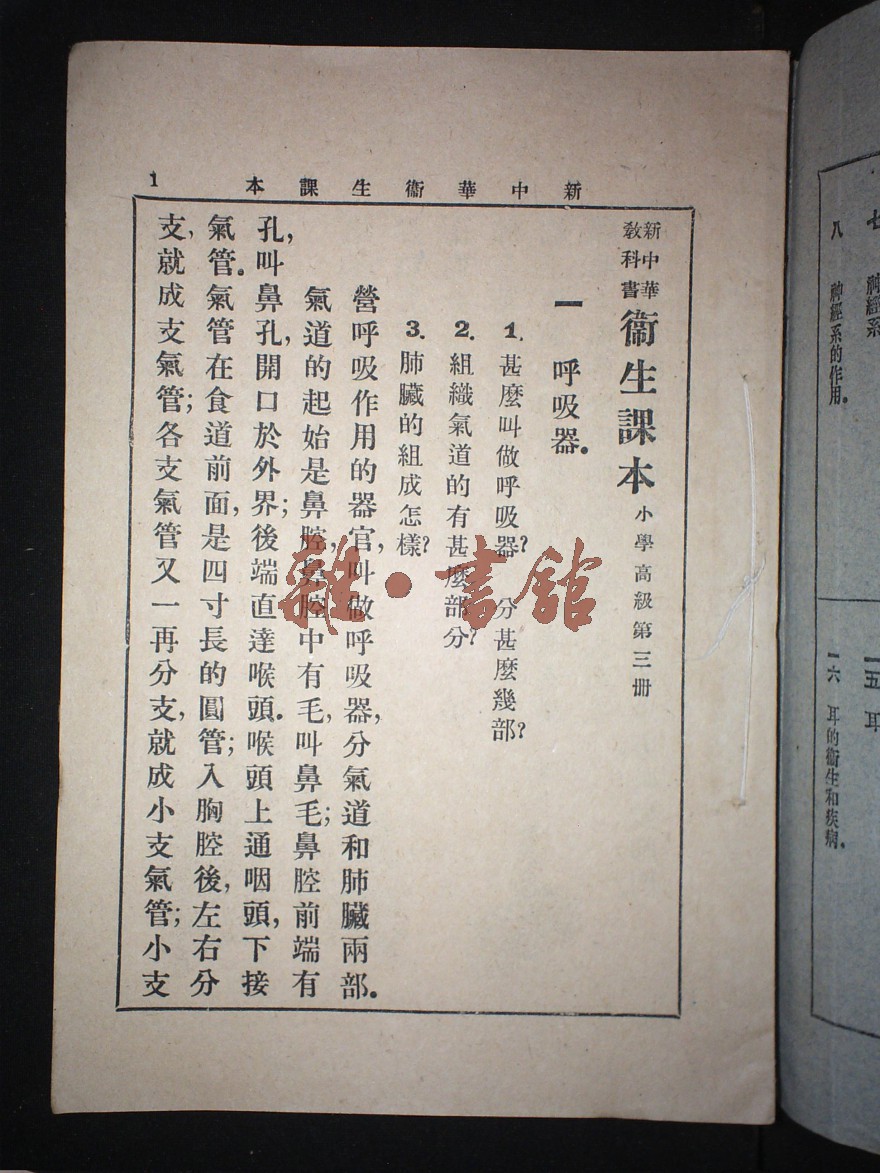 新中華衞生課本
1
新中華
教科書
衞生課本 小學高級第三册
一 呼吸器。
1. 甚麼叫做呼吸器? 分甚麼幾部?
2. 組織氣道的有甚麼部分?
3. 肺臟的組成怎樣?
營呼吸作用的器官,叫做呼吸器,分氣道和肺臟兩部。
氣道的起始是鼻腔,鼻腔中有毛,叫鼻毛;鼻腔前端有
孔,叫鼻孔,開口於外界;後端直達喉頭。喉頭上通咽頭,下接
氣管。氣管在食道前面,是四寸長的圓管;入胸腔後,左右分
支,就成支氣管;各支氣管又一再分支,就成小支氣管;小支
雜·書館
七 神經系
八 神經系的作用。
一五 耳
一六 耳的衞生和疾病。